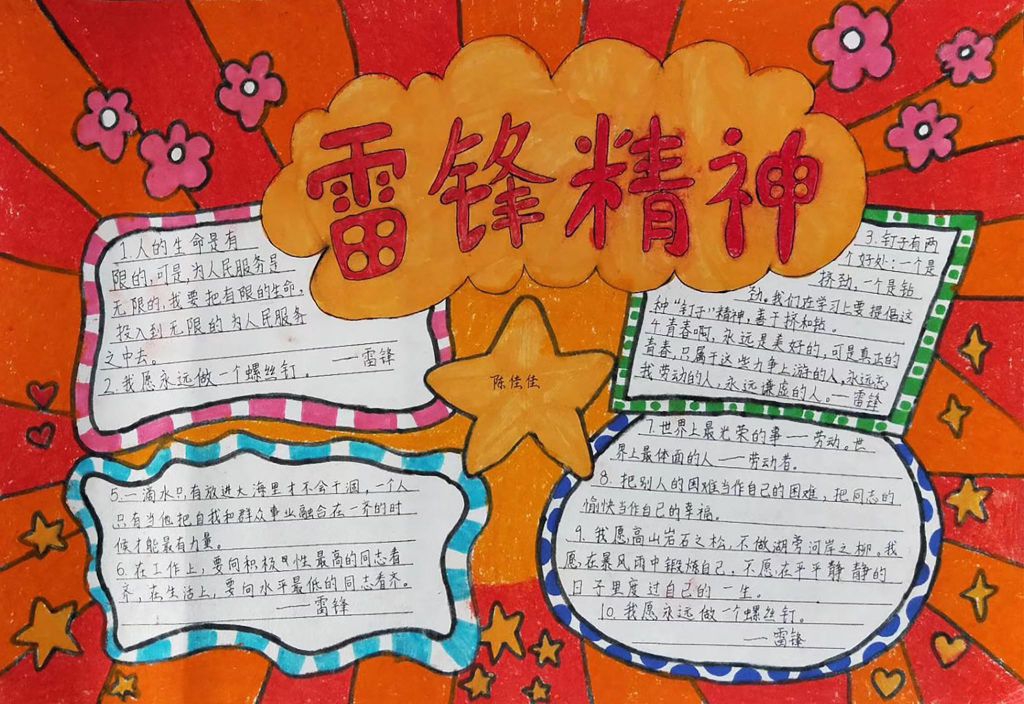 雷锋精神
1.人的生命是有
限的,可是,为人民服务是
无限的,我要把有限的生命,
投入到无限的为人民服务
之中去。 ——雷锋
2.我愿永远做一个螺丝钉。
3.钉子有两
个好处:一个是
挤劲,一个是钻
劲。我们在学习上要提倡这
种"钉子"精神,善于挤和钻。
4.青春啊,永远是美好的,可是真正的
青春,只属于这些力争上游的人,永远忘
我劳动的人,永远谦虚的人。——雷锋
陈佳佳
5.一滴水只有放进大海里才不会干涸,一个人
只有当他把自我和群众事业融合在一齐的时
候才能最有力量。
6.在工作上,要向积极性最高的同志看
齐,在生活上,要向水平最低的同志看齐。
——雷锋
7.世界上最光荣的事——劳动。世
界上最体面的人——劳动者。
8.把别人的困难当作自己的困难,把同志的
愉快当作自己的幸福。
9.我愿高山岩石之松,不做湖旁河岸之柳。我
愿在暴风雨中锻炼自己,不愿在平平静静的
日子里度过自己的一生。
10.我愿永远做一个螺丝钉。
——雷锋